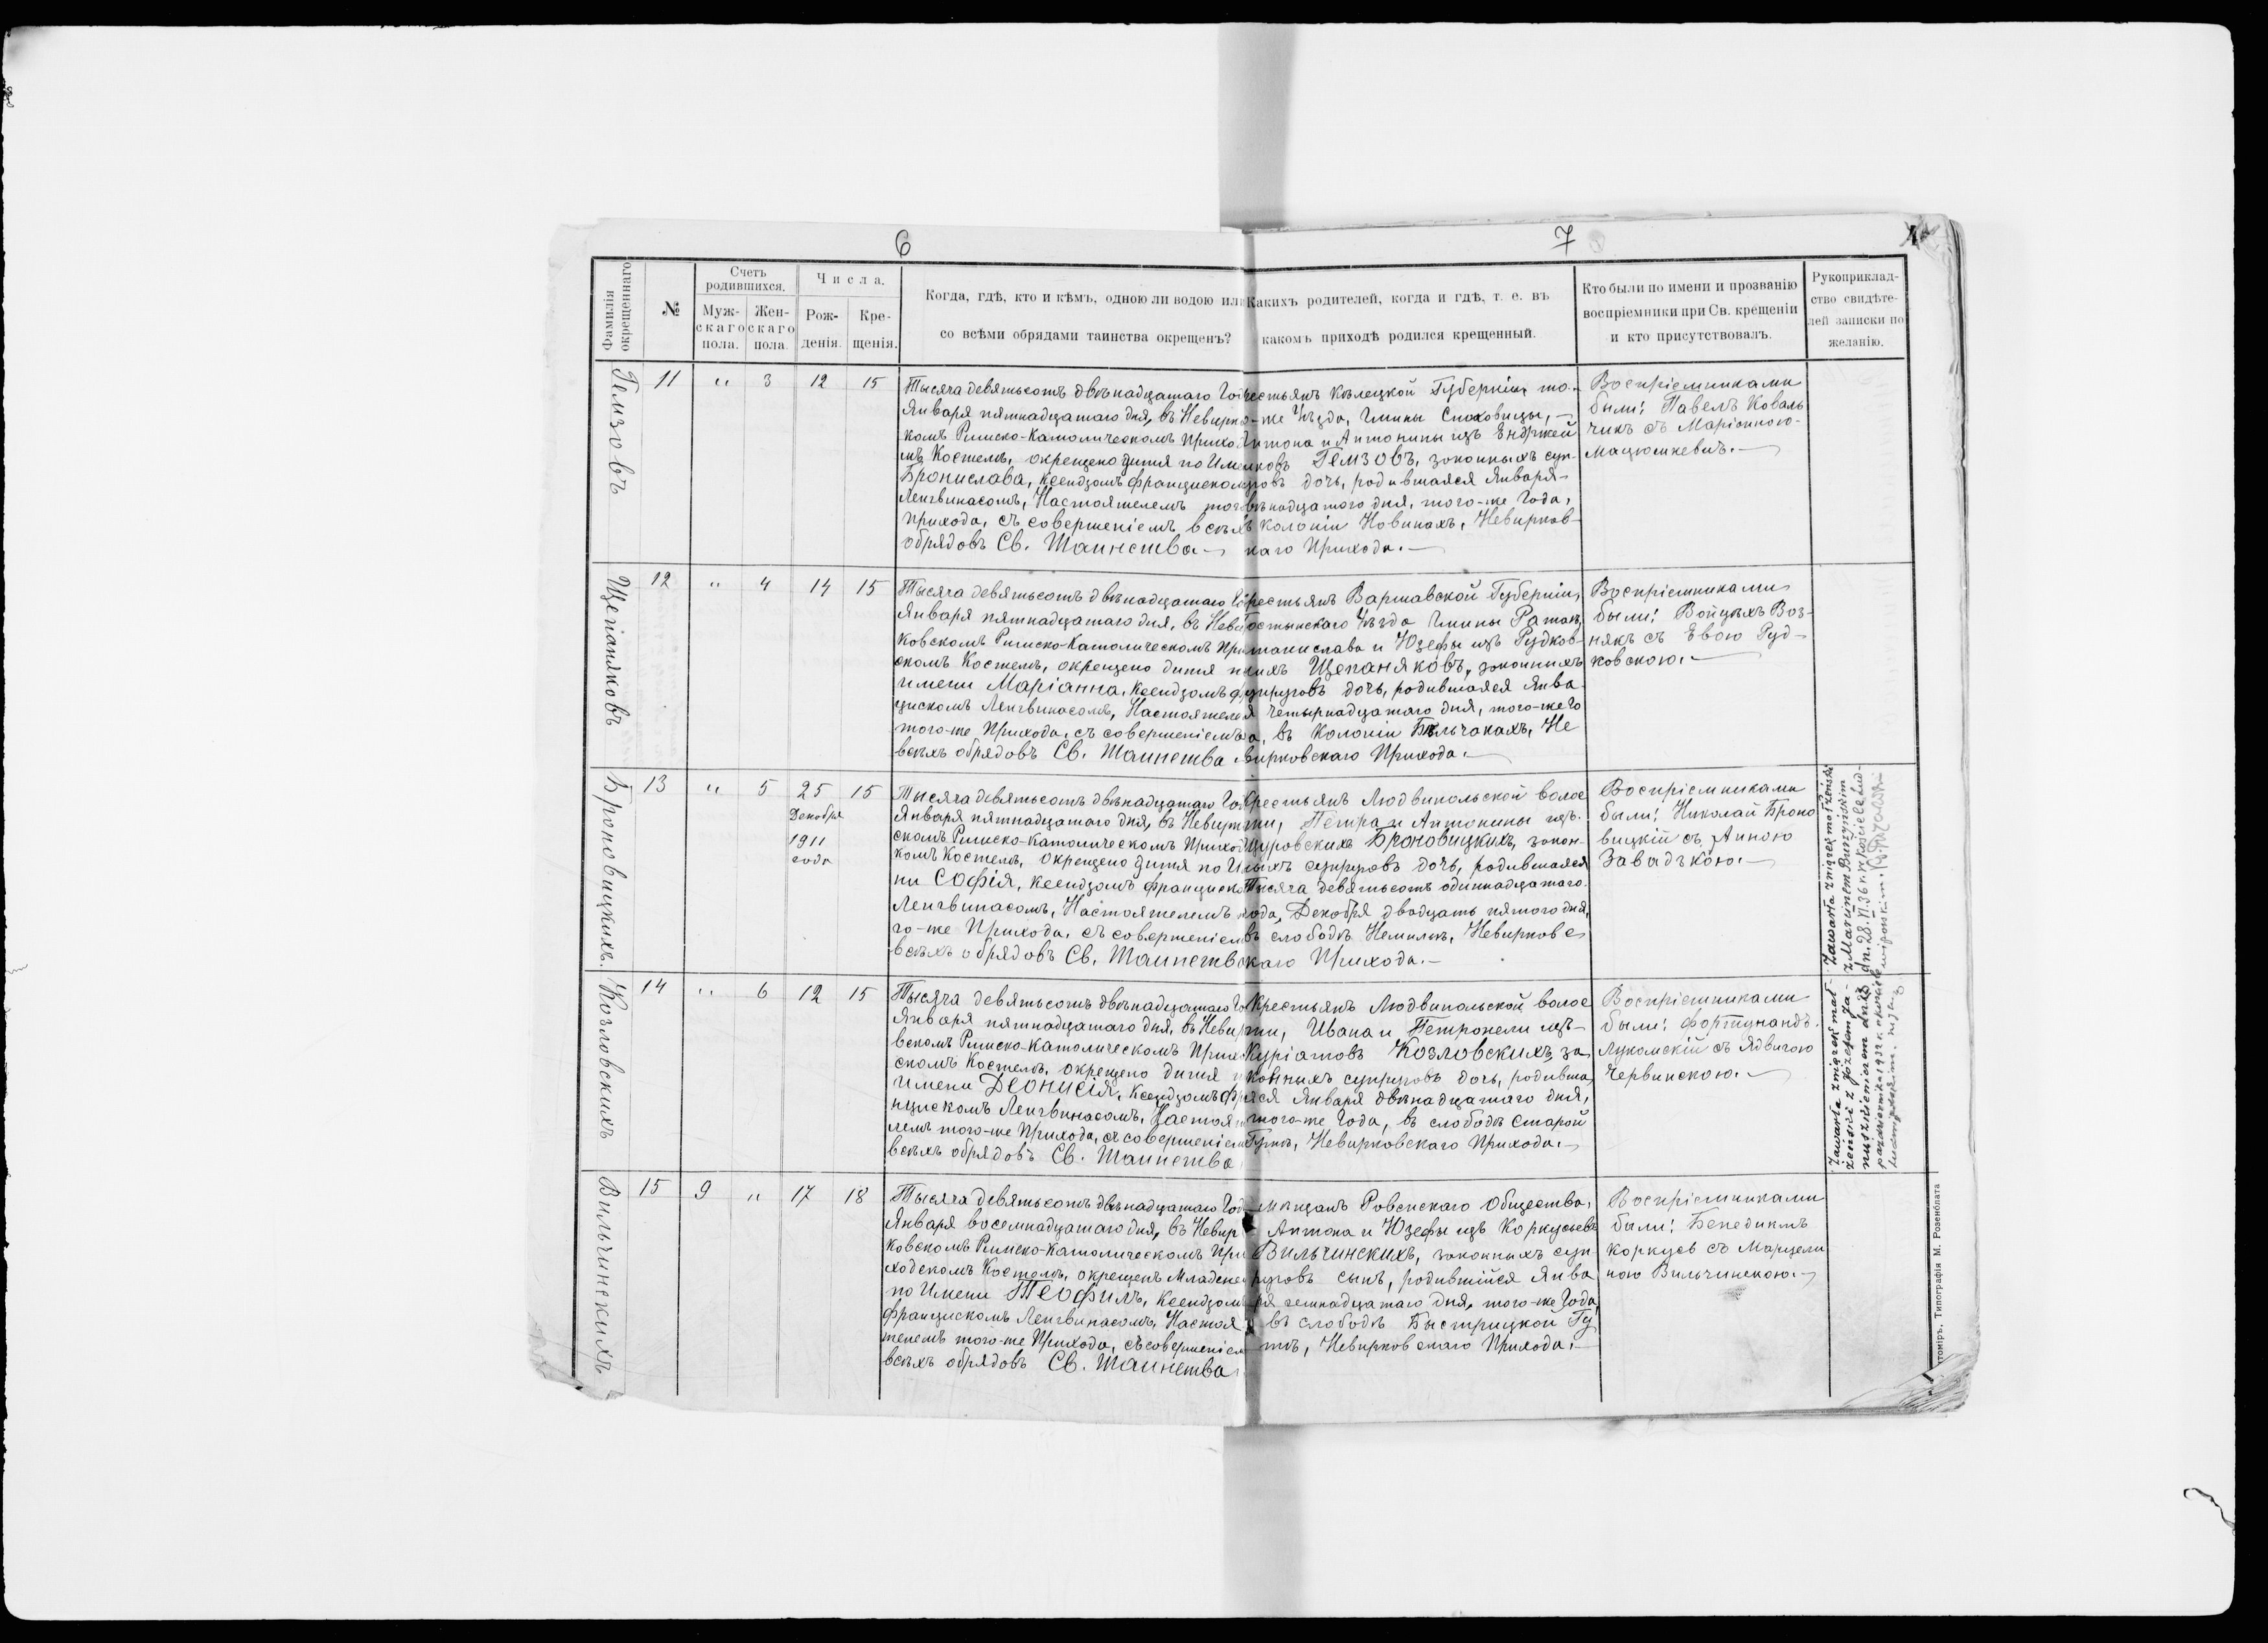 6
7
Фамилія окрещеннаго
№
Счетъ родившихся.
Муж-скаго пола.
Жен-скаго пола.
Числа.
Рож-денія.
Кре-щенія.
Когда, гдѣ, кто и кѣмъ, одною ли водою или
со всѣми обрядами таинства окрещенъ?
Какихъ родителей, когда и гдѣ, т. е. въ
какомъ приходѣ родился крещенный.
Кто были по имени и прозванію
воспріемники при Св. крещеніи
и кто присутствовалъ.
Рукоприклад-
ство свидѣте-
лей записки по
желанію.
Гемзовъ
11 " 3 12 15
Тысяча девятьсотъ двѣнадцатаго Год
Января пятнадцатаго дня, въ Невирко
комъ Римско-Католическомъ Прихо
мъ Костелѣ, окрещено дитя по Име
Бронислава, Ксендзомъ Францискомъ
Ленгвинасомъ, Настоятелемъ того
Прихода, съ совершеніемъ всѣхъ
обрядовъ Св. Таинства
рестьянъ Кѣлецкой Губерніи, то-
же Уѣзда, Гмины Снохов́ицы,
Антона и Антонины изъ Енджей
ковъ Гемзовъ, законныхъ суп-
ровъ дочь, родившаяся Января
вѣнадцатого дня, того-же Года,
въ колоніи Новинахъ, Невирков-
каго Прихода.
Воспріемниками
были: Павелъ Коваль
чикъ съ Маріанною
Мацюшкевичъ.
Щепаняковъ
12 " 4 14 15
Тысяча девятьсотъ двѣнадцатаго Го
Января пятнадцатаго дня, въ Неви
ковскомъ Римско-Католическомъ При
скомъ Костелѣ, окрещено дитя п
имени Маріанна, Ксендзомъ Ф
цискомъ Ленгвинасомъ, Настоятеле
того-же Прихода, съ совершеніемъ
всѣхъ обрядовъ Св. Таинства
рестьянъ Варшавской Губерніи,
Гостынскаго Уѣзда Гмины Ратае,
танислава и Юзефы изъ Рудков-
скихъ Щепаняковъ, законныхъ
упруговъ дочь, родившаяся Янва
я четырнадцатаго дня, того-же Го
а, въ Колоніи Бѣльчакахъ, Не
вирковскаго Прихода.
Воспріемниками
были: Войцѣхъ Воз-
някъ съ Евою Руд-
ковскою.
Броновицкихъ.
13 " 5 25 15
Декабря
1911
года
Тысяча девятьсотъ двѣнадцатаго Го
Января пятнадцатаго дня, въ Невирко
скомъ Римско-Католическомъ Приход
комъ Костелѣ, окрещено дитя по И
ни Софія, Ксендзомъ Франциско
Ленгвинасомъ, Настоятелемъ
го-же Прихода, съ совершеніем
всѣхъ обрядовъ Св. Таинства
Крестьянъ Людвипольской волос
ти, Петра и Антонины изъ
Щуровскихъ Броновицкихъ, закон-
ныхъ супруговъ дочь, родившаяся
Тысяча девятьсотъ одиннадцатаго
года, Декабря двадцать пятого дня,
въ слободѣ Немилѣ, Невирковс
каго Прихода.
Воспріемниками
были: Николай Броно
вицкій съ Анною
Завадъкою.
Zawarła związek małżeński
z Marcinem Burzyńskim
dn. 28.VI.36 r. w kościele Lud-
wipolskim.
Козловскихъ
14 " 6 12 15
Тысяча девятьсотъ двѣнадцатаго Го
Января пятнадцатаго дня, въ Невир
вскомъ Римско-Католическомъ Прихо
скомъ Костелѣ, окрещено дитя п
имени Деонисія, Ксендзомъ Фра
нцискомъ Ленгвинасомъ, Настоят
лемъ того-же Прихода, съ совершеніем
всѣхъ обрядовъ Св. Таинства
Крестьянъ Людвипольской волос
ти, Ивана и Петронели изъ
Куріатовъ Козловскихъ, за
конныхъ супруговъ дочь, родивша
яся Января двѣнадцатаго дня,
того-же Года, въ слободѣ Старой
Гутѣ, Невирковскаго Прихода.
Воспріемниками
были: Фортунандъ
Лукомскій съ Ядвигою
Червинскою.
Zawarła związek mał-
żeński z Józefem Ja-
nuszkiewiczem dn. 23
października 1932 r.
Вильчинскихъ
15 9 " 17 18
Тысяча девятьсотъ двѣнадцатаго Год
Января восемнадцатаго дня, въ Невир
ковскомъ Римско-Католическомъ При
ходскомъ Костелѣ, окрещенъ Младене
по Имени Теофилъ, Ксендзомъ
Францискомъ Ленгвинасомъ, Настоя
телемъ того-же Прихода, съ совершеніем
всѣхъ обрядовъ Св. Таинства
мѣщанъ Ровенскаго Общества,
Антона и Юзефы изъ Коркусьевъ
Вильчинскихъ, законныхъ суп-
руговъ сынъ, родившійся Янва
ря семнадцатаго дня, того-же Года,
въ слободѣ Быстрицкой Гу
тѣ, Невирковскаго Прихода.
Воспріемниками
были: Бенедиктъ
Коркусь съ Марцели
ною Вильчинскою.
томіръ, Типографія М. Розенблата